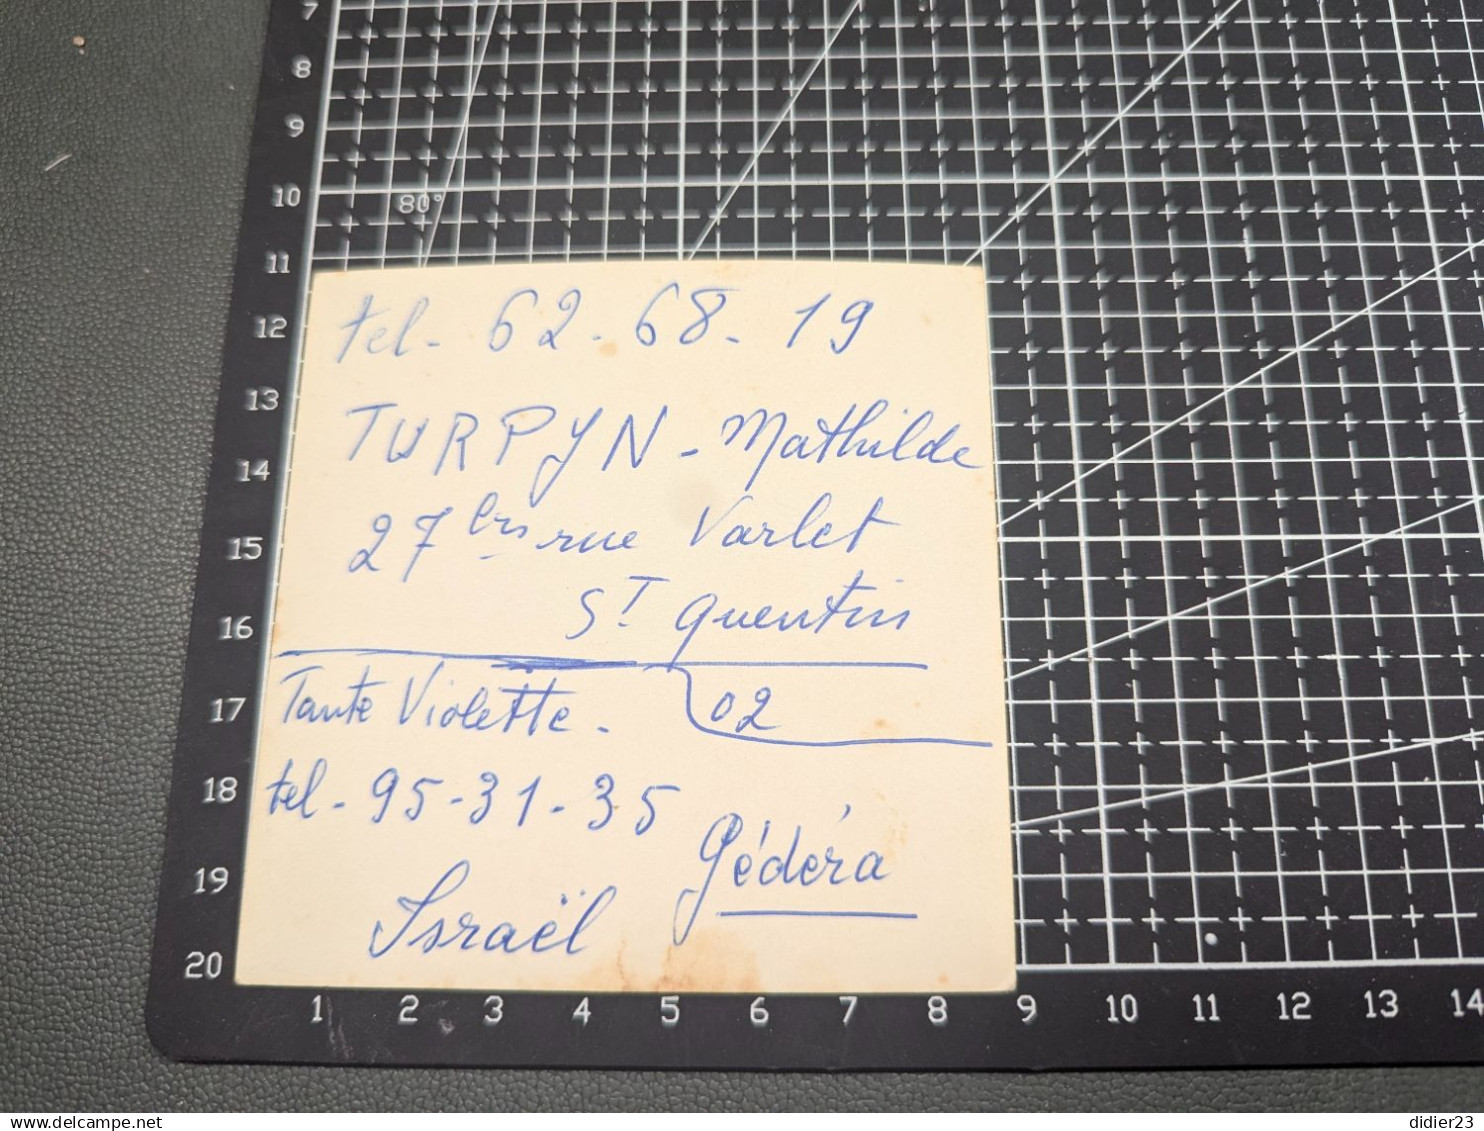 7
8
9
10
80°
11
tel - 62 - 68 - 19
12
13
TURPYN - Mathilde
14
27 bis rue Varlet
15
ST quentin
16
Tante Violette.
02
17
tel - 95 - 31 - 35
18
gédéra
19
Israël
20
1 2 3 4 5 6 7 8 9 10 11 12 13 14
delcampe.net
didier23